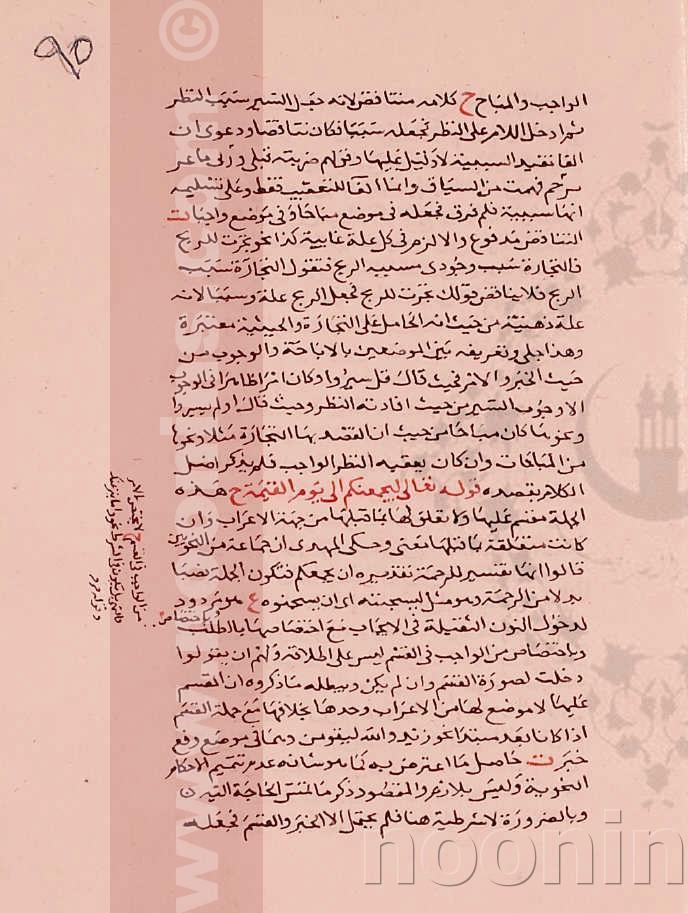 ٩٥
الواجب والمباح ح كلامه متناقض لانه جعل السير سبب النظر
ثم ادخل اللام على النظر فجعله سببا فكان تناقضا ودعوى ان
الفا تفيد السببية لا دليل عليها وقولهم ضربته فبكى وزنى ماعز
فرجم فهمت من السياق وانما الفا للتعقيب فقط وعلى تسليمه
انها سببية فلم فرق فجعله فى موضع مباحا وفى موضع واجبا ت
التناقض مدفوع والا لزم فى كل علة غايية كذا نحو تجرت للربح
فالتجارة سبب وجودى مسببه الربح فتقول التجارة سبب
الربح فلا يناقض قولك تجرت للربح فجعل الربح علة وسببا لانه
علة ذهنية من حيث انه الحامل على التجارة والحيثية معتبرة
وهذا جلى وتفريقه بين الموضعين بالاباحة والوجوب من
حيث الخبر والامر فحيث قال قل سيروا وكان امرا ظاهرا فى الوجوب
الا وجوب السير من حيث افادته النظر وحيث قال اولم يسيروا
ونحوهما كان مباحا من حيث ان القصد بها التجارة مثلا ونحوها
من المباحات وان كان يعقبه النظر الواجب فلم يذكر اصل
الكلام بقصده قوله تعالى ليجمعنكم الى يوم القيمة ح هذه
الجملة مقسم عليها ولا تعلق لها بما قبلها من جهة الاعراب وان
كانت متعلقة بما قبلها معنى وحكى المهدوى ان جماعة من النحويين
قالوا انها تفسير للرحمة تقديره ان يجمعكم فتكون الجملة نصبا
بدلا من الرحمة وهو مثل ليسجننه اى ان يسجنوه ع هو مردود
لدخول النون الثقيلة فى الايجاب مع اختصاصها بالطلب
وباختصاص من الواجب فى القسم ليس على اطلاقه ولهم ان يقولوا
دخلت لصورة القسم وان لم يكن ويبطله ما ذكروه ان المقسم
عليها لا موضع لها من الاعراب وحدها بخلافها مع جملة القسم
اذا كانا بعد مبتدا نحو زيد والله ليقومن وهما فى موضع رفع
خبر ت حاصل ما اعترض به كما هو شانه عدم تتميم الاحكام
النحوية وليس بلازم والمقصود ذكر ما تمس الحاجة اليه
وبالضرورة لا شرطية هنا فلم يحتمل الا الخبر والقسم فجعله
من الواجب فى القسم لا يختص الامر
noonin